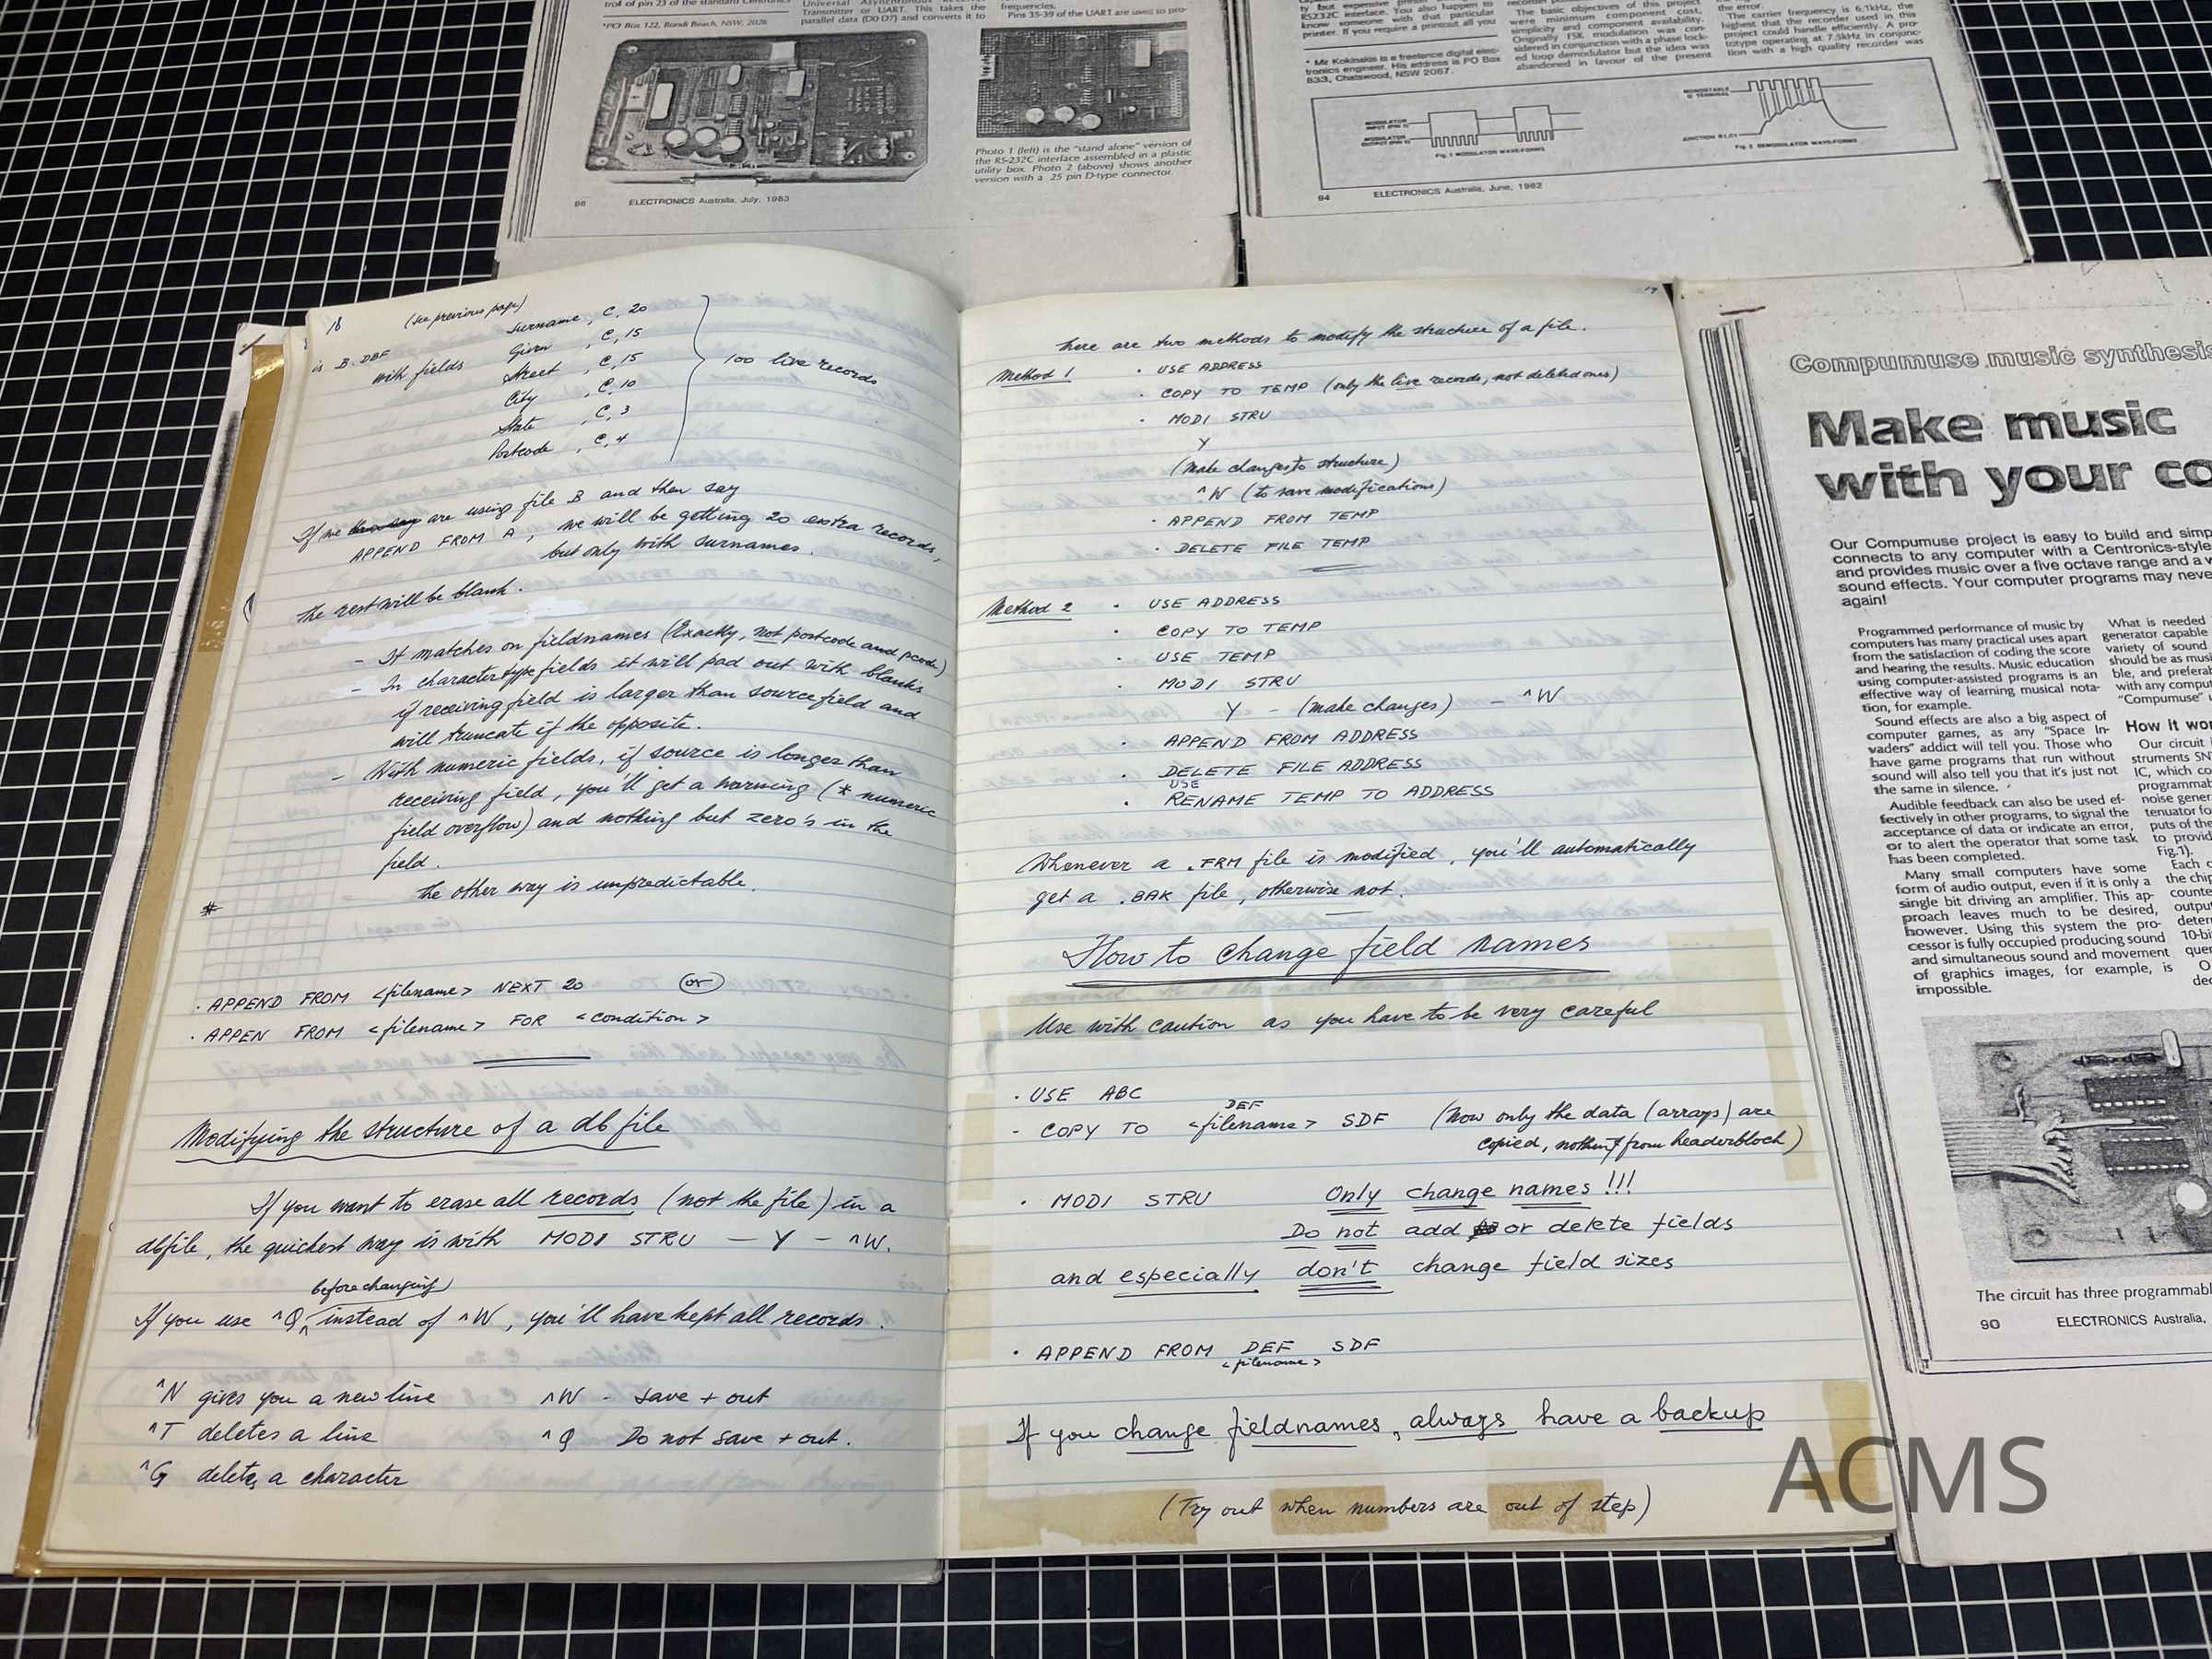 troll of pin 23 of the standard Centronics
*PO Box 122, Bondi Beach, NSW, 2026
Universal Asynchronous Receiver
Transmitter or UART. This takes the
parallel data (D0-D7) and converts it to
frequencies.
Pins 35-39 of the UART are used to pro-
Photo 1 (left) is the "stand alone" version of
the RS-232C interface assembled in a plastic
utility box. Photo 2 (above) shows another
version with a 25 pin D-type connector.
96 ELECTRONICS Australia, July, 1983
ty but expensive printer
RS232C interface. You also happen to
know someone with that particular
printer. If you require a printout all you
* Mr Kokinakis is a freelance digital elec-
tronics engineer. His address is PO Box
833, Chatswood, NSW 2067.
The basic objectives of this project
were minimum component cost,
simplicity and component availability.
Originally FSK modulation was con-
sidered in conjunction with a phase lock-
ed loop demodulator but the idea was
abandoned in favour of the present
the error.
The carrier frequency is 6.1kHz, the
highest that the recorder used in this
project could handle efficiently. A pro-
totype operating at 7.5kHz in conjunc-
tion with a high quality recorder was
MODULATOR
INPUT (PIN 5)
MODULATOR
OUTPUT (PIN 3)
Fig. 1 MODULATOR WAVEFORMS
MONOSTABLE
Q TERMINAL
JUNCTION R1,C1
Fig. 2 DEMODULATOR WAVEFORMS
94 ELECTRONICS Australia, June, 1982
18 (see previous page)
is B.DBF
with fields
Surname, C, 20
Given, C, 15
Street, C, 15
City, C, 10
State, C, 3
Postcode, C, 4
100 live records
If we then say are using file B and then say
APPEND FROM A, we will be getting 20 extra records,
but only with surnames.
The rest will be blank.
- It matches on fieldnames (Exactly, not postcode and pcode)
- In character type fields it will pad out with blanks
if receiving field is larger than source field and
will truncate if the opposite.
- With numeric fields, if source is longer than
receiving field, you'll get a warning (* numeric
field overflow) and nothing but zero's in the
field.
The other way is unpredictable.
*
· APPEND FROM <filename> NEXT 20 (or)
· APPEN FROM <filename> FOR <condition>
Modifying the structure of a db file
If you want to erase all records (not the file) in a
dbfile, the quickest way is with MODI STRU — Y — ^W.
before changing
If you use ^Q instead of ^W, you'll have kept all records.
^N gives you a new line ^W - save + out
^T deletes a line ^Q Do not save + out.
^G deletes a character
There are two methods to modify the structure of a file.
Method 1 · USE ADDRESS
· COPY TO TEMP (only the live records, not deleted ones)
· MODI STRU
Y
(Make changes to structure)
^W (to save modifications)
· APPEND FROM TEMP
· DELETE FILE TEMP
Method 2 · USE ADDRESS
· COPY TO TEMP
· USE TEMP
· MODI STRU
Y - (make changes) - ^W
· APPEND FROM ADDRESS
· DELETE FILE ADDRESS
USE
· RENAME TEMP TO ADDRESS
Whenever a .FRM file is modified, you'll automatically
get a .BAK file, otherwise not.
How to change field names
Use with caution as you have to be very careful
· USE ABC
DEF
- COPY TO <filename> SDF (Now only the data (arrays) are
copied, nothing from headerblock)
· MODI STRU Only change names!!!
Do not add or delete fields
and especially don't change field sizes
· APPEND FROM DEF SDF
<filename>
If you change fieldnames, always have a backup
(Try out when numbers are out of step)
Compumuse music synthesis
Make music
with your co
Our Compumuse project is easy to build and simp
connects to any computer with a Centronics-style
and provides music over a five octave range and a w
sound effects. Your computer programs may never
again!
Programmed performance of music by
computers has many practical uses apart
from the satisfaction of coding the score
and hearing the results. Music education
using computer-assisted programs is an
effective way of learning musical nota-
tion, for example.
Sound effects are also a big aspect of
computer games, as any "Space In-
vaders" addict will tell you. Those who
have game programs that run without
sound will also tell you that it's just not
the same in silence.
Audible feedback can also be used ef-
fectively in other programs, to signal the
acceptance of data or indicate an error,
or to alert the operator that some task
has been completed.
Many small computers have some
form of audio output, even if it is only a
single bit driving an amplifier. This ap-
proach leaves much to be desired,
however. Using this system the pro-
cessor is fully occupied producing sound
and simultaneous sound and movement
of graphics images, for example, is
impossible.
What is needed
generator capable
variety of sound
should be as music
ble, and preferab
with any comput
"Compumuse" u
How it wor
Our circuit
struments SN
IC, which co
programmab
noise gener
tenuator fo
puts of the
to provid
Fig.1).
Each o
the chip
counte
output
deter
10-bi
que
O
dec
The circuit has three programmabl
90 ELECTRONICS Australia,
ACMS